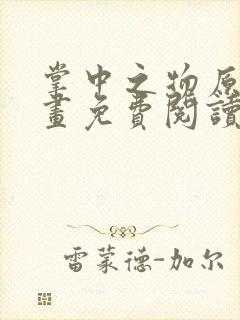 掌中之物原
畫免費閱讀
雷蒙德-加尔